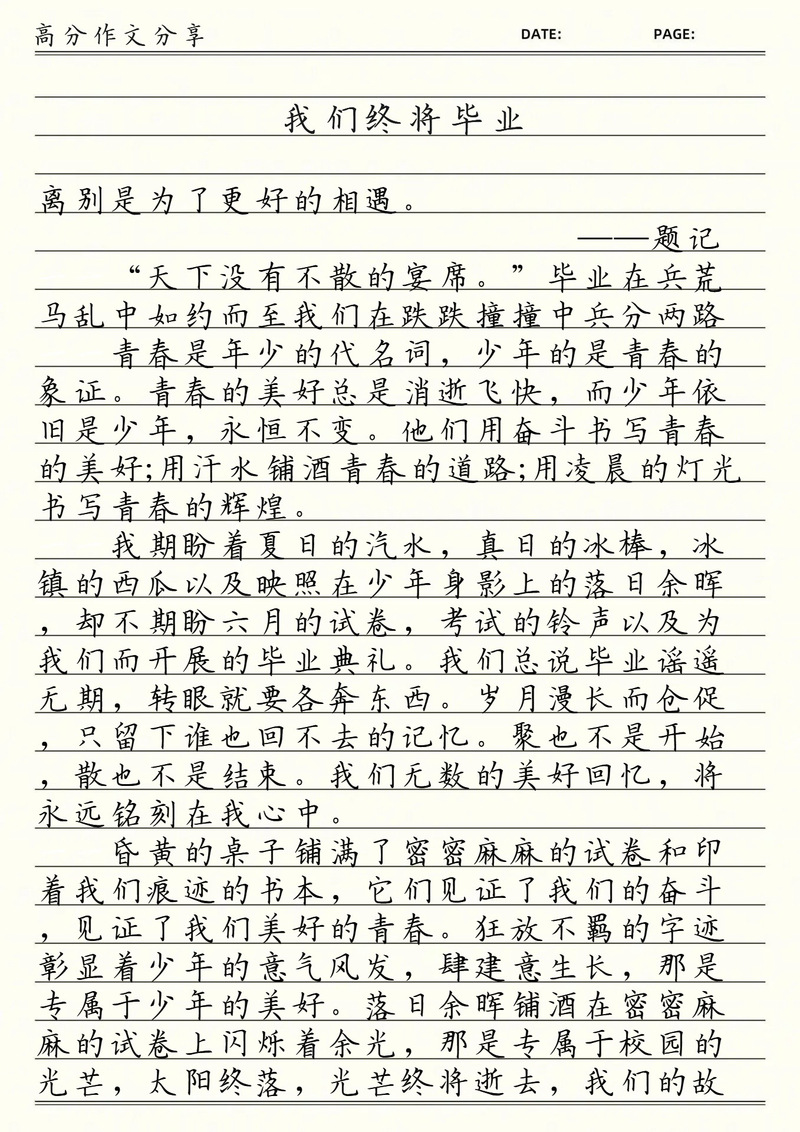 高分作文分享 DATE: PAGE:
我们终将毕业
离别是为了更好的相遇。
——题记
“天下没有不散的宴席。”毕业在兵荒
马乱中如约而至我们在跌跌撞撞中兵分两路
青春是年少的代名词，少年的是青春的
象证。青春的美好总是消逝飞快，而少年依
旧是少年，永恒不变。他们用奋斗书写青春
的美好;用汗水铺洒青春的道路;用凌晨的灯光
书写青春的辉煌。
我期盼着夏日的汽水，真日的冰棒，冰
镇的西瓜以及映照在少年身影上的落日余晖
，却不期盼六月的试卷，考试的铃声以及为
我们而开展的毕业典礼。我们总说毕业谣遥
无期，转眼就要各奔东西。岁月漫长而仓促
，只留下谁也回不去的记忆。聚也不是开始
，散也不是结束。我们无数的美好回忆，将
永远铭刻在我心中。
昏黄的桌子铺满了密密麻麻的试卷和印
着我们痕迹的书本，它们见证了我们的奋斗
，见证了我们美好的青春。狂放不羁的字迹
彰显着少年的意气风发，肆建意生长，那是
专属于少年的美好。落日余晖铺洒在密密麻
麻的试卷上闪烁着余光，那是专属于校园的
光芒，太阳终落，光芒终将逝去，我们的故